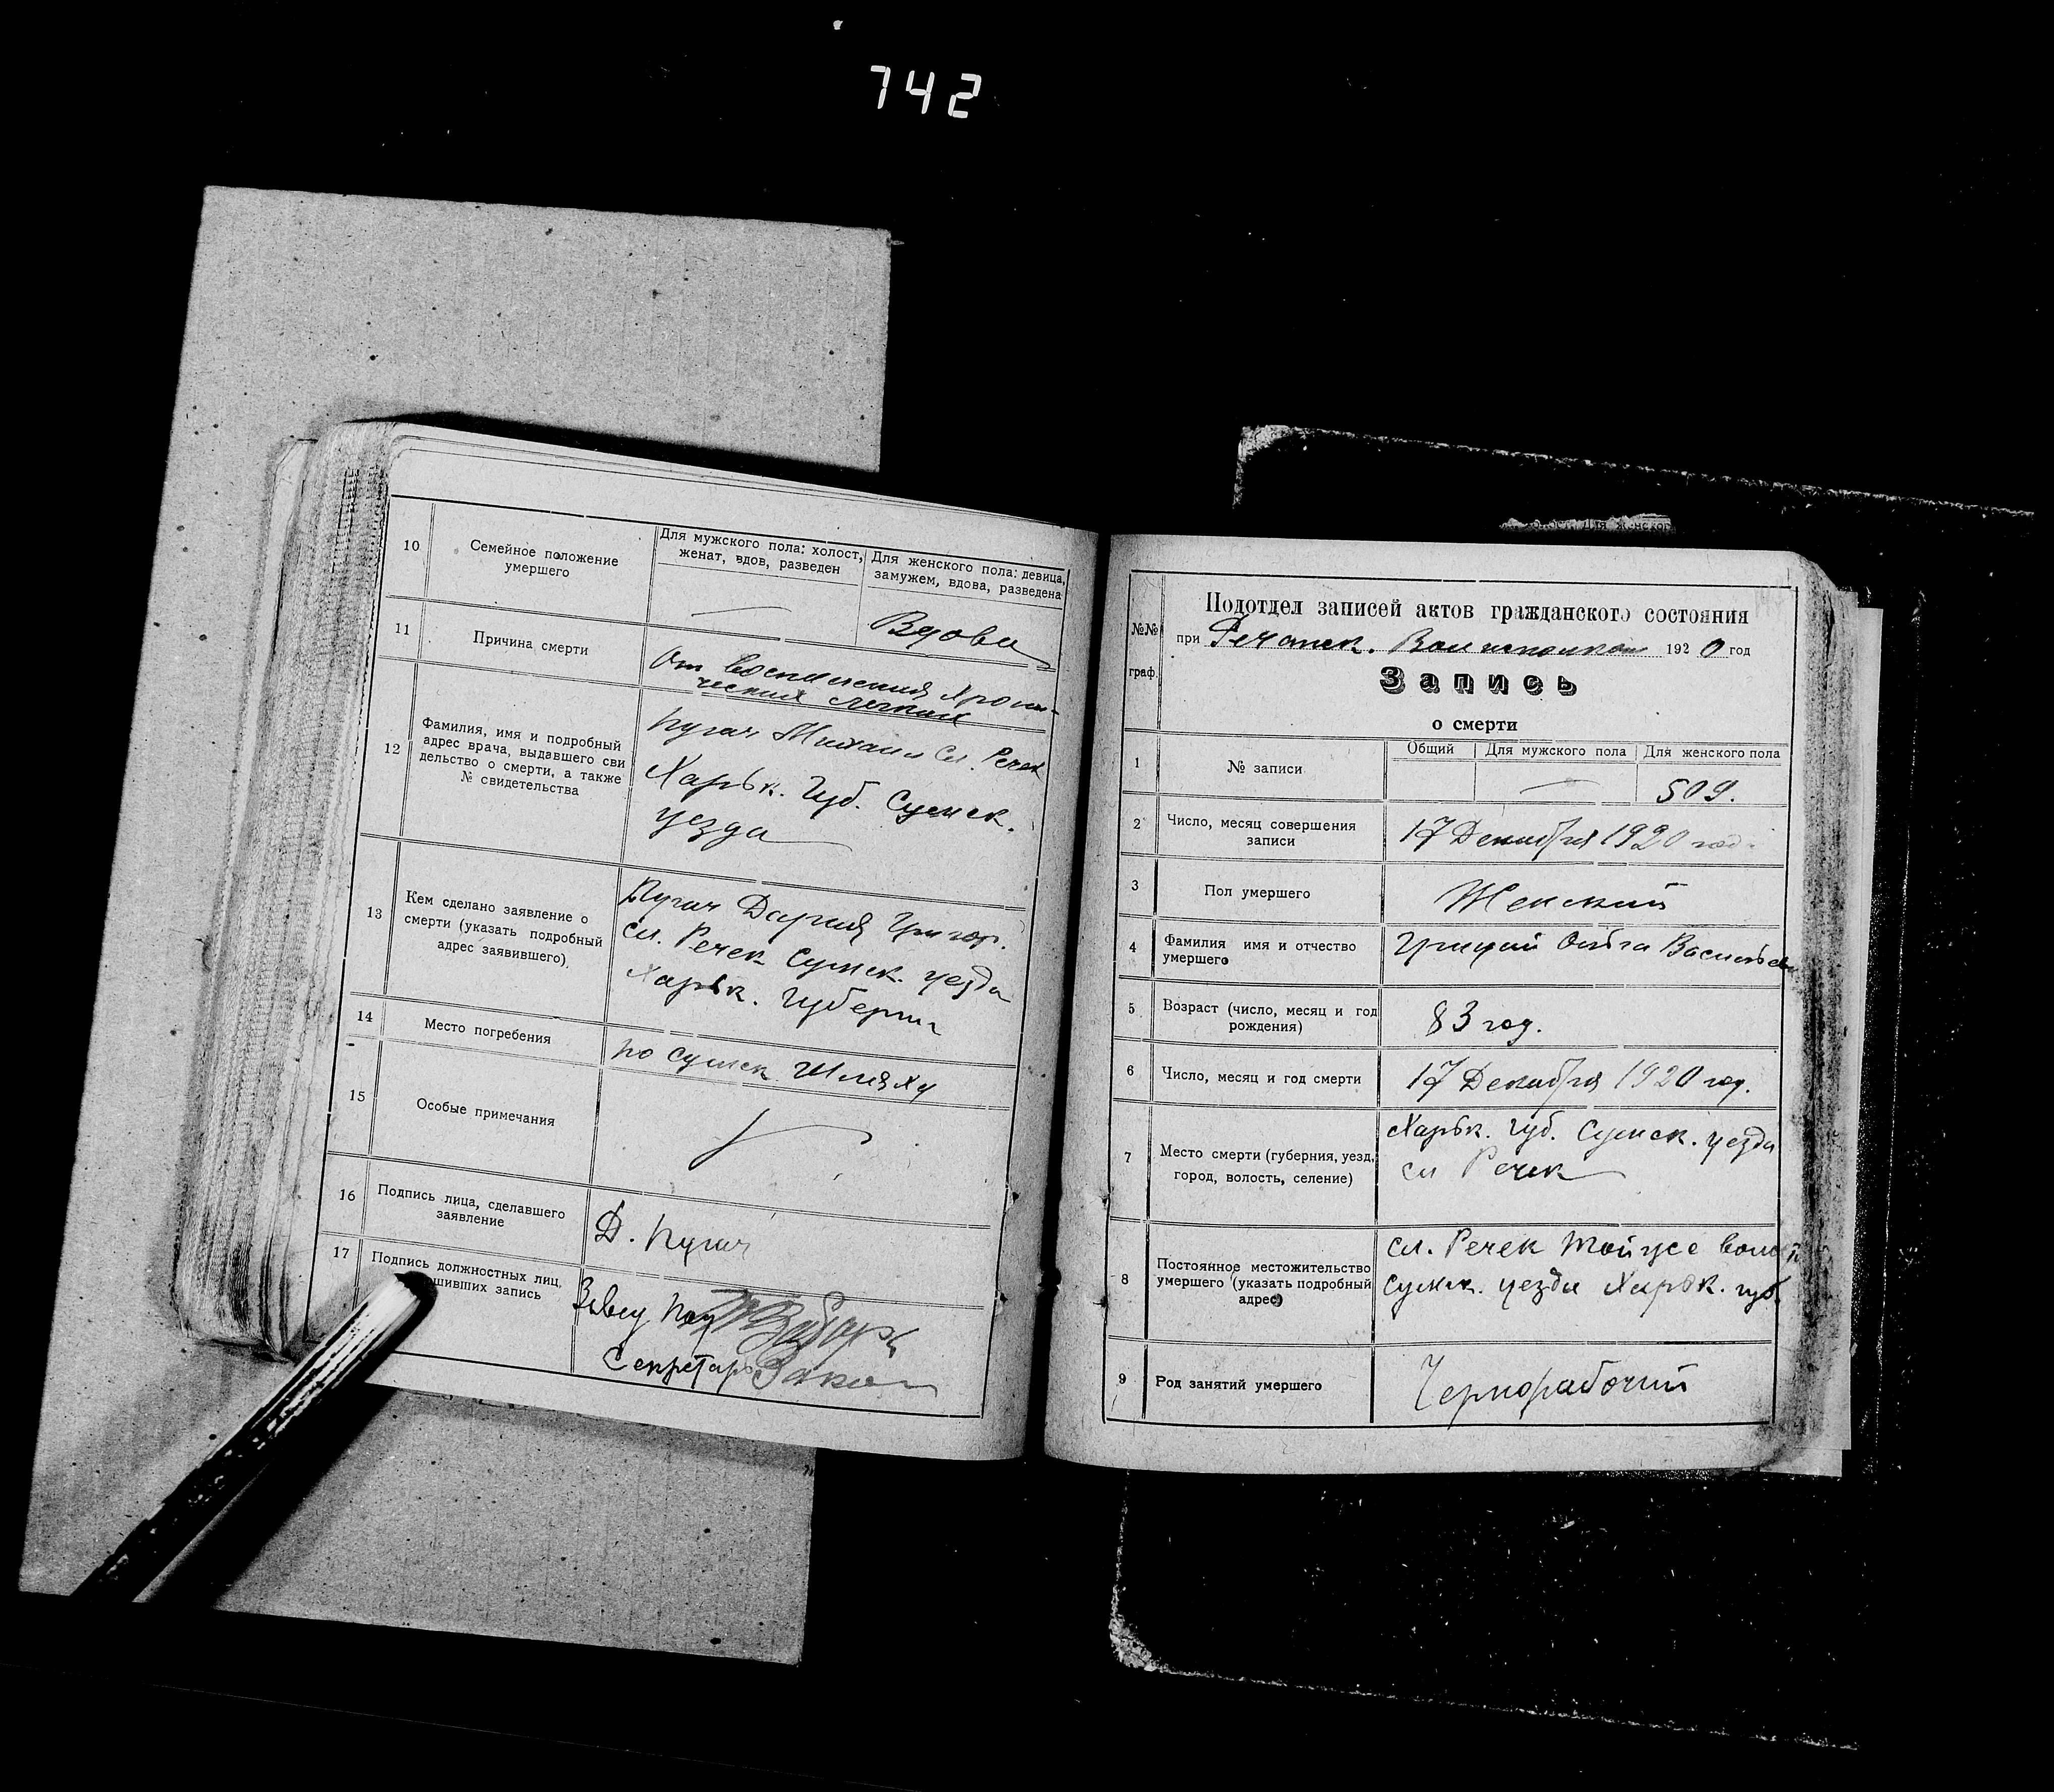 742
10
Семейное положение
умершего
Для мужского пола: холост,
женат, вдов, разведен
Для женского пола: девица,
замужем, вдова, разведена
Вдова
11
Причина смерти
От воспаления хрони-
ческих легких
12
Фамилия, имя и подробный
адрес врача, выдавшего сви
дельство о смерти, а также
№ свидетельства
Пугач Михаил Сл. Речек
Харьк. Губ. Сумск.
уезда
13
Кем сделано заявление о
смерти (указать подробный
адрес заявившего)
Пугач Дария Григор.
сл. Речек Сумск. уезда
Харьк. Губерни
14
Место погребения
по Сумск Шляху
15
Особые примечания
16
Подпись лица, сделавшего
заявление
Д. Пугач
17
Подпись должностных лиц,
шивших запись
Секретарь
№№
граф.
Подотдел записей актов гражданского состояния
при Речанск. Волисполком 1920 год
Запись
о смерти
1
№ записи
Общий
Для мужского пола
Для женского пола
509.
2
Число, месяц совершения
записи
17 Декабря 1920 год.
3
Пол умершего
Женский
4
Фамилия имя и отчество
умершего
Грицай Ольга Васильев
5
Возраст (число, месяц и год
рождения)
83 год.
6
Число, месяц и год смерти
17 Декабря 1920 год.
7
Место смерти (губерния, уезд,
город, волость, селение)
Харьк. Губ. Сумск. уезда
сл Речек
8
Постоянное местожительство
умершего (указать подробный
адрес)
сл. Речек Тойусе волости
Сумск. уезда Харьк. губ.
9
Род занятий умершего
Чернорабочий